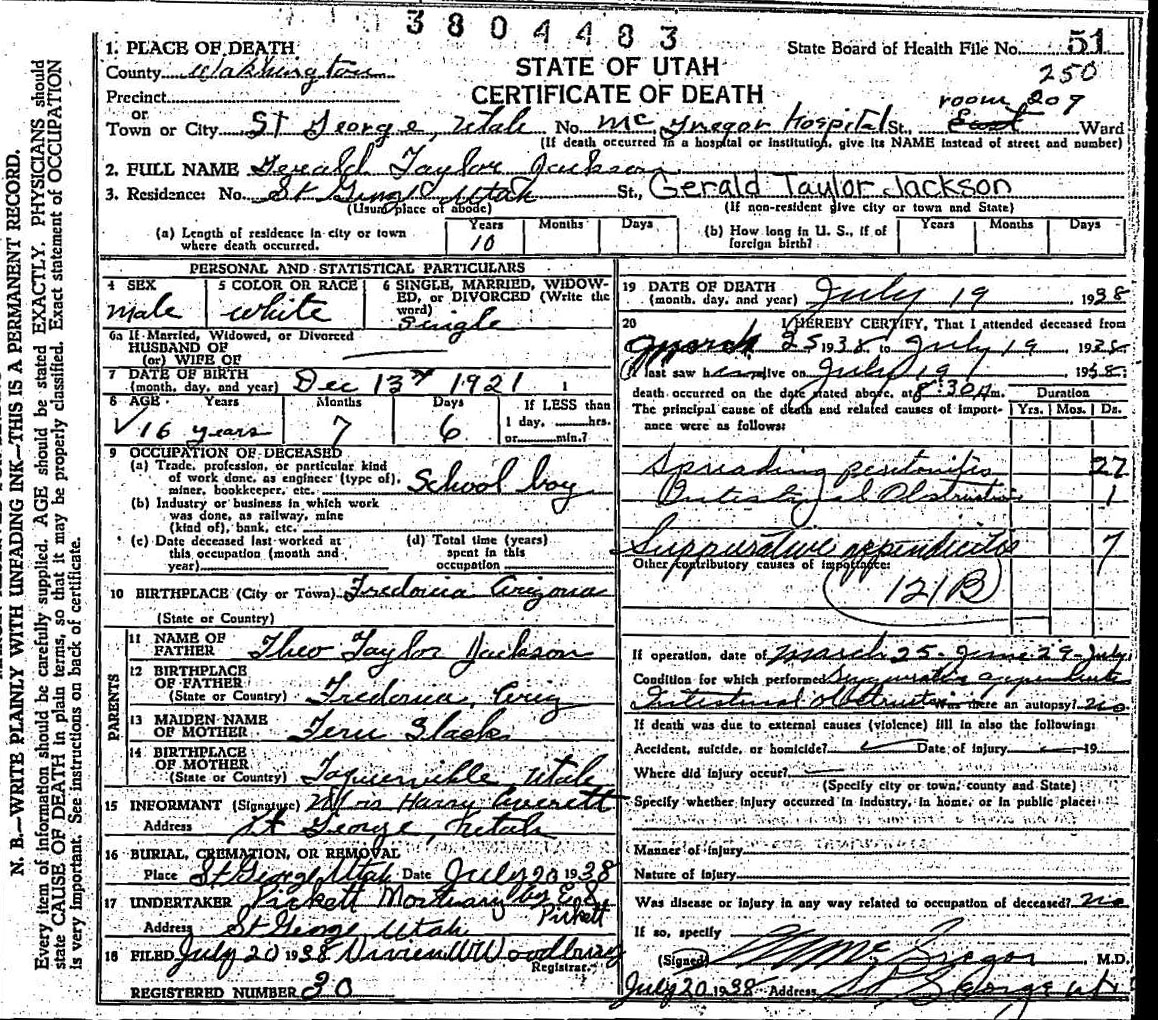 3804483
State Board of Health File No. 51
250
1. PLACE OF DEATH
County Washington
STATE OF UTAH
CERTIFICATE OF DEATH
Precinct
or
Town or City St George, Utah No. Mc Gregor Hospital St., room 209 Ward
(If death occurred in a hospital or institution, give its NAME instead of street and number)
2. FULL NAME Gerald Taylor Jackson
3. Residence: No. St George Utah St., Gerald Taylor Jackson
(Usual place of abode) (If non-resident give city or town and State)
(a) Length of residence in city or town where death occurred. Years 10 Months Days
(b) How long in U. S., if of foreign birth? Years Months Days
PERSONAL AND STATISTICAL PARTICULARS
4 SEX male
5 COLOR OR RACE white
6 SINGLE, MARRIED, WIDOWED, or DIVORCED (Write the word) Single
6a If Married, Widowed, or Divorced
HUSBAND OF
(or) WIFE OF
7 DATE OF BIRTH
(month, day, and year) Dec 13th 1921
8 AGE Years Months Days If LESS than
16 years 7 6 1 day, hrs.
or min.?
9 OCCUPATION OF DECEASED
(a) Trade, profession, or particular kind
of work done, as engineer (type of),
miner, bookkeeper, etc. School boy
(b) Industry or business in which work
was done, as railway, mine
(kind of), bank, etc.
(c) Date deceased last worked at
this occupation (month and
year)
(d) Total time (years)
spent in this
occupation
10 BIRTHPLACE (City or Town) Fredonia Arizona
(State or Country)
PARENTS
11 NAME OF
FATHER Theo Taylor Jackson
12 BIRTHPLACE
OF FATHER
(State or Country) Fredonia, Ariz
13 MAIDEN NAME
OF MOTHER Fern Slack
14 BIRTHPLACE
OF MOTHER
(State or Country) Toquerville Utah
15 INFORMANT (Signature) Mrs Harry Averett
Address St George, Utah
16 BURIAL, CREMATION, OR REMOVAL
Place St George Utah Date July 20 1938
17 UNDERTAKER Pickett Mortuary by
Pickett
Address St George Utah
18 FILED July 20 1938 Vivien W Woodbury
Registrar.
REGISTERED NUMBER 30
19 DATE OF DEATH
(month, day, and year) July 19 1938
20 I HEREBY CERTIFY, That I attended deceased from
March 25 1938 to July 19 1938
I last saw him alive on July 19 1938
death occurred on the date stated above, at 8:30 A m.
The principal cause of death and related causes of importance were as follows:
Duration
Yrs. Mos. Ds.
Spreading peritonitis 27
Intestinal Obstruction 1
Suppurative appendicitis 7
Other contributory causes of importance:
121B
If operation, date of March 25 - June 29 - July
Condition for which performed Suppurative appendicitis
Intestinal Obstruction Was there an autopsy? no
If death was due to external causes (violence) fill in also the following:
Accident, suicide, or homicide? Date of injury 19
Where did injury occur?
(Specify city or town, county and State)
Specify whether injury occurred in industry, in home, or in public place:
Manner of injury
Nature of injury
Was disease or injury in any way related to occupation of deceased? no
If so, specify
(Signed) McGregor, M.D.
July 20 1938 Address St George Ut
N. B.—WRITE PLAINLY WITH UNFADING INK—THIS IS A PERMANENT RECORD.
Every item of information should be carefully supplied. AGE should be stated EXACTLY. PHYSICIANS should
state CAUSE OF DEATH in plain terms, so that it may be properly classified. Exact statement of OCCUPATION
is very important. See instructions on back of certificate.